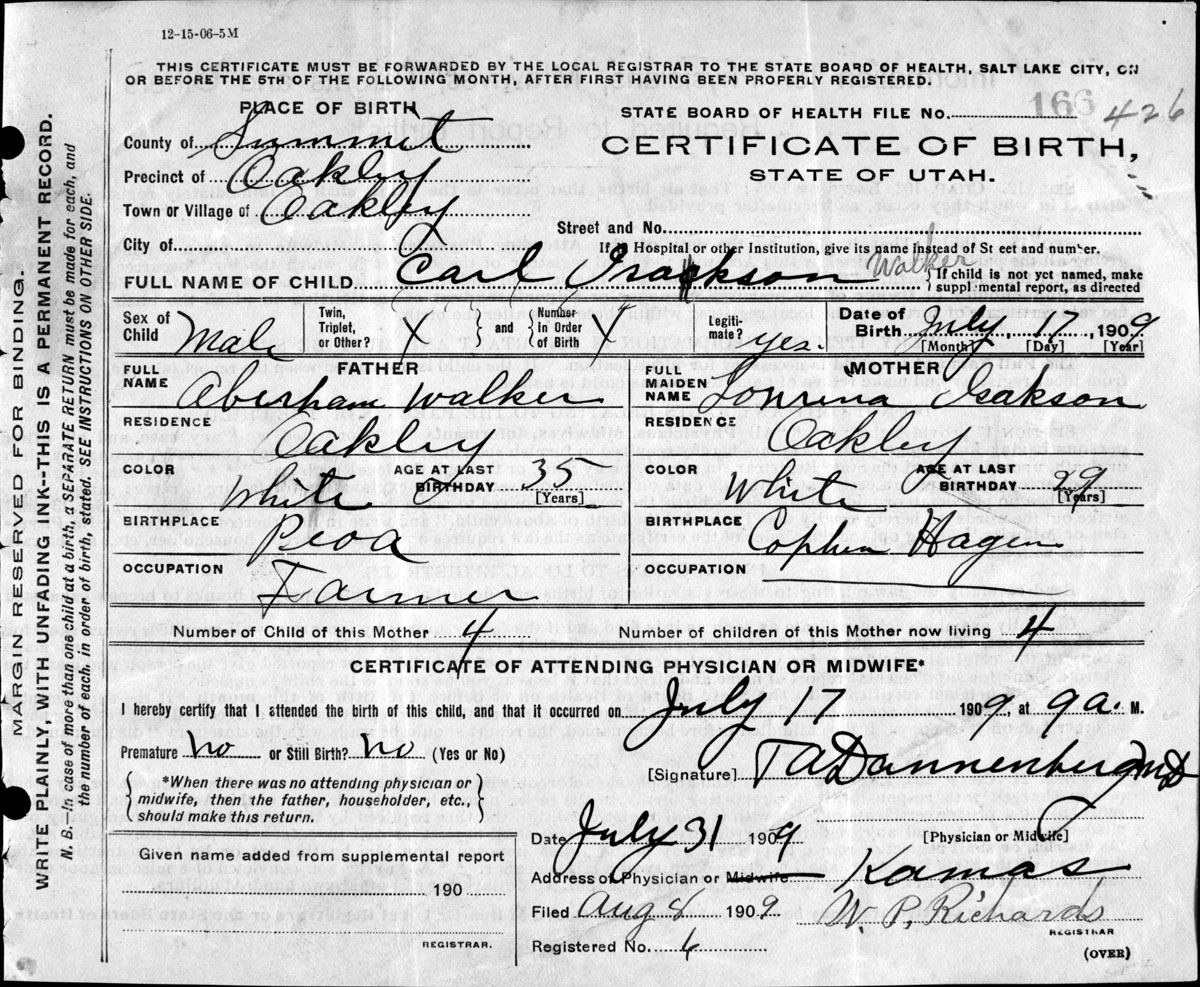 12-15-06-5M
THIS CERTIFICATE MUST BE FORWARDED BY THE LOCAL REGISTRAR TO THE STATE BOARD OF HEALTH, SALT LAKE CITY, ON
OR BEFORE THE 5TH OF THE FOLLOWING MONTH, AFTER FIRST HAVING BEEN PROPERLY REGISTERED.
PLACE OF BIRTH
County of Summit
Precinct of Oakley
Town or Village of Oakley
City of
STATE BOARD OF HEALTH FILE No. 166 426
CERTIFICATE OF BIRTH,
STATE OF UTAH.
Street and No.
If in Hospital or other Institution, give its name instead of Street and number.
FULL NAME OF CHILD. Carl Isackson Walker { If child is not yet named, make
supplemental report, as directed
Sex of Child Male Twin, Triplet, or Other? X { and } Number In Order of Birth X Legiti-mate? yes. Date of Birth July 17, 1909
[Month] [Day] [Year]
FATHER
FULL NAME Aberham Walker
RESIDENCE Oakley
COLOR White AGE AT LAST BIRTHDAY 35 [Years]
BIRTHPLACE Peoa
OCCUPATION Farmer
MOTHER
FULL MAIDEN NAME Lourina Isakson
RESIDENCE Oakley
COLOR Whit AGE AT LAST BIRTHDAY 29 [Years]
BIRTHPLACE Cophen Hagen
OCCUPATION
Number of Child of this Mother 4 Number of children of this Mother now living 4
CERTIFICATE OF ATTENDING PHYSICIAN OR MIDWIFE*
I hereby certify that I attended the birth of this child, and that it occurred on July 17 1909, at 9 a. M.
Premature no or Still Birth? no (Yes or No)
{ *When there was no attending physician or
midwife, then the father, householder, etc.,
should make this return. }
[Signature] T A Dannenberg MD
[Physician or Midwife]
Date July 31 1909
Address of Physician or Midwife Kamas
Filed Aug 8 1909 W. P. Richards
REGISTRAR
Registered No. 6
(OVER)
Given name added from supplemental report
190
REGISTRAR.
MARGIN RESERVED FOR BINDING.
WRITE PLAINLY, WITH UNFADING INK--THIS IS A PERMANENT RECORD.
N. B.: In case of more than one child at a birth, a SEPARATE RETURN must be made for each, and
the number of each, in order of birth, stated. SEE INSTRUCTIONS ON OTHER SIDE.